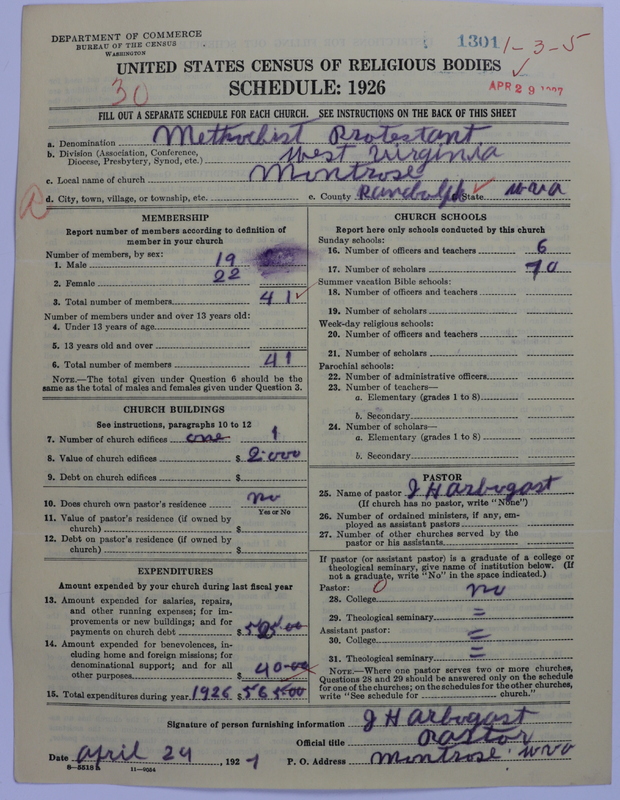 DEPARTMENT OF COMMERCE
BUREAU OF THE CENSUS
WASHINGTON
1301
1-3-5
UNITED STATES CENSUS OF RELIGIOUS BODIES
30
SCHEDULE: 1926
APR 29 1927
FILL OUT A SEPARATE SCHEDULE FOR EACH CHURCH. SEE INSTRUCTIONS ON THE BACK OF THIS SHEET
a. Denomination Methodist Protestant
b. Division (Association, Conference, Diocese, Presbytery, Synod, etc.) West Virginia
c. Local name of church Montrose
d. City, town, village, or township, etc. e. County Randolph State W va
MEMBERSHIP
Report number of members according to definition of
member in your church
Number of members, by sex:
1. Male 19
2. Female 22
3. Total number of members 41
Number of members under and over 13 years old:
4. Under 13 years of age
5. 13 years old and over
6. Total number of members 41
NOTE.—The total given under Question 6 should be the
same as the total of males and females given under Question 3.
CHURCH BUILDINGS
See instructions, paragraphs 10 to 12
7. Number of church edifices one 1
8. Value of church edifices $ 2000
9. Debt on church edifices $
10. Does church own pastor's residence no
Yes or No
11. Value of pastor's residence (if owned by
church) $
12. Debt on pastor's residence (if owned by
church) $
EXPENDITURES
Amount expended by your church during last fiscal year
13. Amount expended for salaries, repairs,
and other running expenses; for im-
provements or new buildings; and for
payments on church debt $ 525.00
14. Amount expended for benevolences, in-
cluding home and foreign missions; for
denominational support; and for all
other purposes $ 40-00
15. Total expenditures during year 1926 $ 565.00
CHURCH SCHOOLS
Report here only schools conducted by this church
Sunday schools:
16. Number of officers and teachers 6
17. Number of scholars 70
Summer vacation Bible schools:
18. Number of officers and teachers
19. Number of scholars
Week-day religious schools:
20. Number of officers and teachers
21. Number of scholars
Parochial schools:
22. Number of administrative officers
23. Number of teachers—
a. Elementary (grades 1 to 8)
b. Secondary
24. Number of scholars—
a. Elementary (grades 1 to 8)
b. Secondary
PASTOR
25. Name of pastor J H Arbogast
(If church has no pastor, write "None")
26. Number of ordained ministers, if any, em-
ployed as assistant pastors
27. Number of other churches served by the
pastor or his assistants
If pastor (or assistant pastor) is a graduate of a college or
theological seminary, give name of institution below. (If
not a graduate, write "No" in the space indicated.)
Pastor: 0
28. College no
29. Theological seminary =
Assistant pastor:
30. College =
31. Theological seminary =
NOTE.—Where one pastor serves two or more churches,
Questions 28 and 29 should be answered only on the schedule
for one of the churches; on the schedules for the other churches,
write "See schedule for church."
Signature of person furnishing information J H Arbogast
Official title Pastor
Date April 24, 1927 P. O. Address Montrose W va
8—5518 11—9054